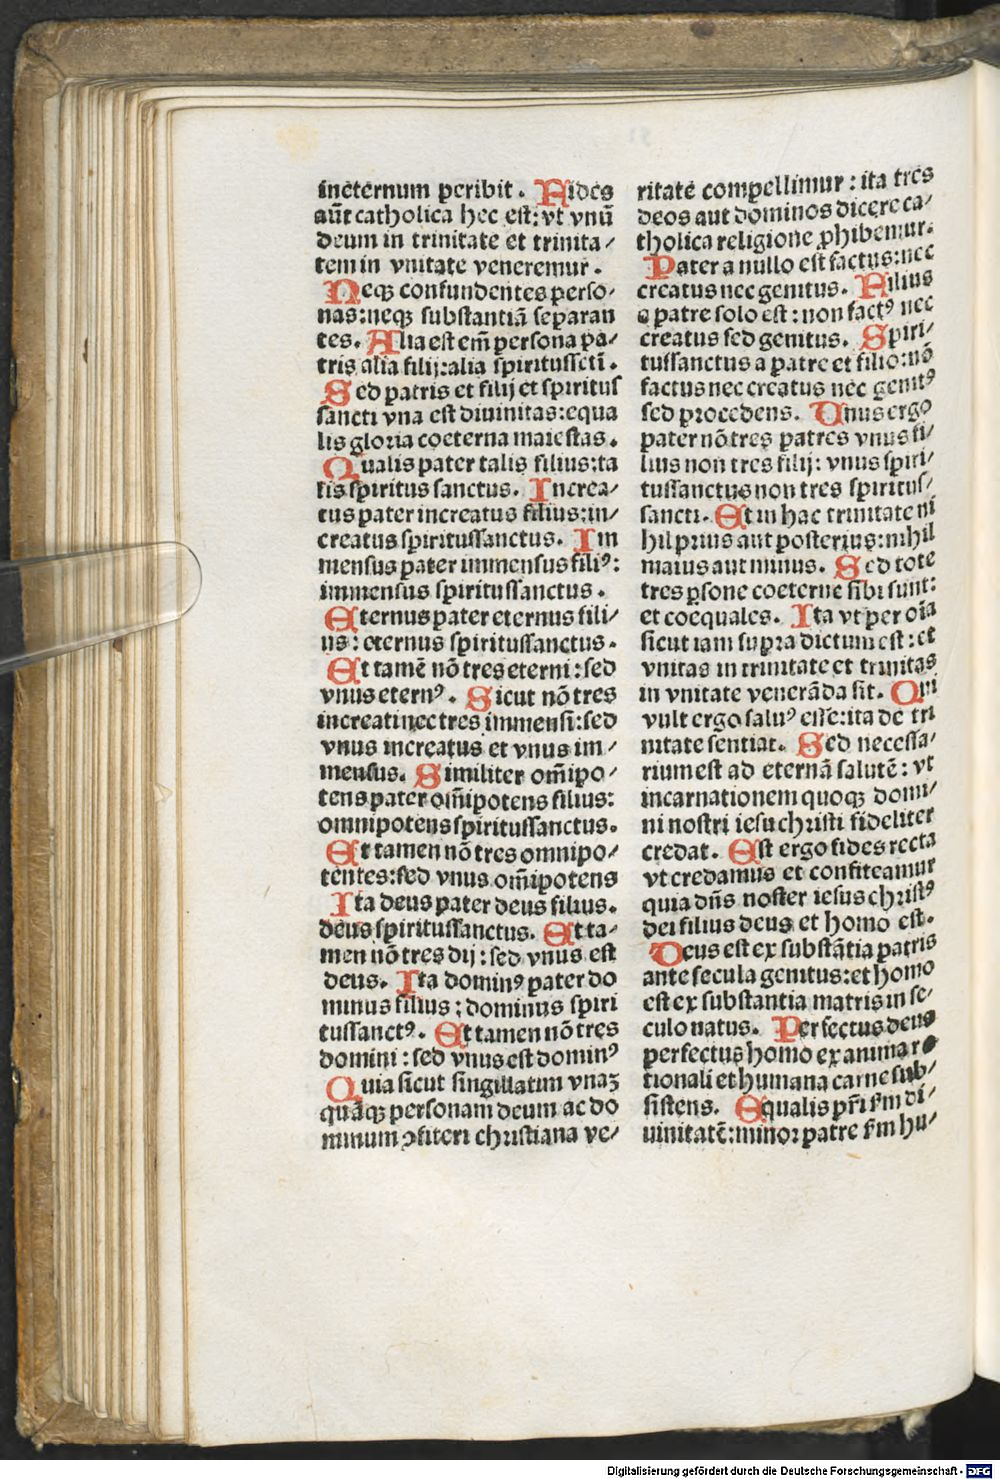 ineternum peribit. Fides
aūt catholica hec est: vt vnū
deum in trinitate et trinita/
tem in vnitate veneremur.
Neqꝫ confundentes perso/
nas: neqꝫ substantiā separan
tes. Alia est em̄ persona pa/
tris alia filij: alia spiritusscti̅.
Sed patris et filij et spiritus
sancti vna est diuinitas: equa
lis gloria coeterna maiestas.
Qualis pater talis filius: ta
lis spiritus sanctus. Increa/
tus pater increatus filius: in/
creatus spiritussanctus. Im
mensus pater immensus filiꝰ:
immensus spiritussanctus.
Eternus pater eternus fili/
us: eternus spiritussanctus.
Et tamē nō tres eterni: sed
vnus eternꝰ. Sicut nō tres
increati nec tres immensi: sed
vnus increatus et vnus im/
mensus. Similiter om̄ipo/
tens pater om̄ipotens filius:
omnipotens spiritussanctus.
Et tamen nō tres omnipo/
tentes: sed vnus om̄ipotens
Ita deus pater deus filius.
deus spiritussanctus. Et ta/
men nō tres dij: sed vnus est
deus. Ita dominꝰ pater do
minus filius: dominus spiri
tussanctꝰ. Et tamen nō tres
domini: sed vnus est dominꝰ
Quia sicut singillatim vnaꝫ
quāqꝫ personam deum ac do
minum ꝯfiteri christiana ve/
ritate compellimur: ita tres
deos aut dominos dicere ca/
tholica religione ꝓhibemur.
Pater a nullo est factus: nec
creatus nec genitus. Filius
a patre solo est: non factꝰ nec
creatus sed genitus. Spiri/
tussanctus a patre et filio: nō
factus nec creatus nec genitꝰ
sed procedens. Unus ergo
pater nō tres patres vnus fi/
lius non tres filij: vnus spiri/
tussanctus non tres spiritus/
sancti. Et in hac trinitate ni
hil prius aut posterius: nihil
maius aut minus. Sed tote
tres ꝑsone coeterne sibi sunt:
et coequales. Ita vt per oīa
sicut iam supra dictum est: et
vnitas in trinitate et trinitas
in vnitate venerāda sit. Qui
vult ergo saluꝰ esse: ita de tri
nitate sentiat. Sed necessa/
rium est ad eternā salutē: vt
incarnationem quoqꝫ domi/
ni nostri iesu christi fideliter
credat. Est ergo fides recta
vt credamus et confiteamur
quia dn̄s noster iesus christꝰ
dei filius deus et homo est.
Deus est ex substātia patris
ante secula genitus: et homo
est ex substantia matris in se/
culo natus. Perfectus deus
perfectus homo ex anima ra
tionali et humana carne sub/
sistens. Equalis pr̄i ẜm di/
uinitatē: minor patre ẜm hu/
Digitalisierung gefördert durch die Deutsche Forschungsgemeinschaft - DFG